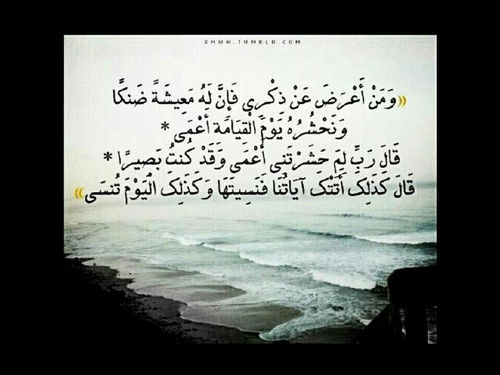 EMMM.TUMBLR.COM
«وَمَنْ أَعْرَضَ عَنْ ذِكْرِي فَإِنَّ لَهُ مَعِيشَةً ضَنكًا
وَنَحْشُرُهُ يَوْمَ الْقِيَامَةِ أَعْمَى *
قَالَ رَبِّ لِمَ حَشَرْتَنِي أَعْمَى وَقَدْ كُنتُ بَصِيرًا *
قَالَ كَذَلِكَ أَتَتْكَ آيَاتُنَا فَنَسِيتَهَا وَكَذَلِكَ الْيَوْمَ تُنسَى»